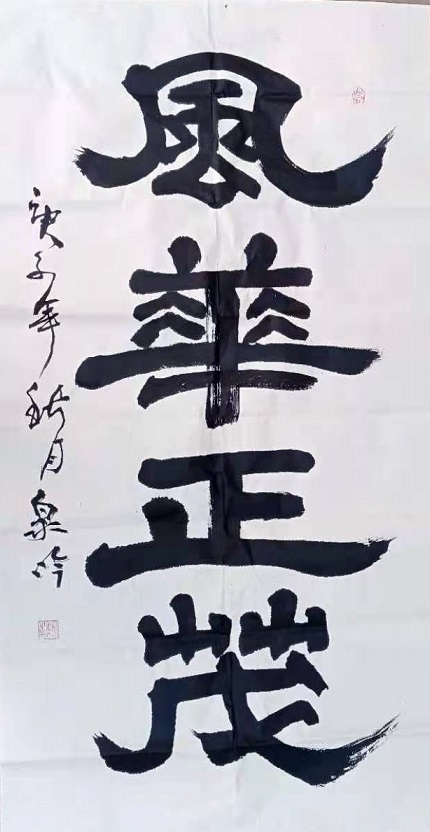 風華正茂
庚子年秋月泉吟